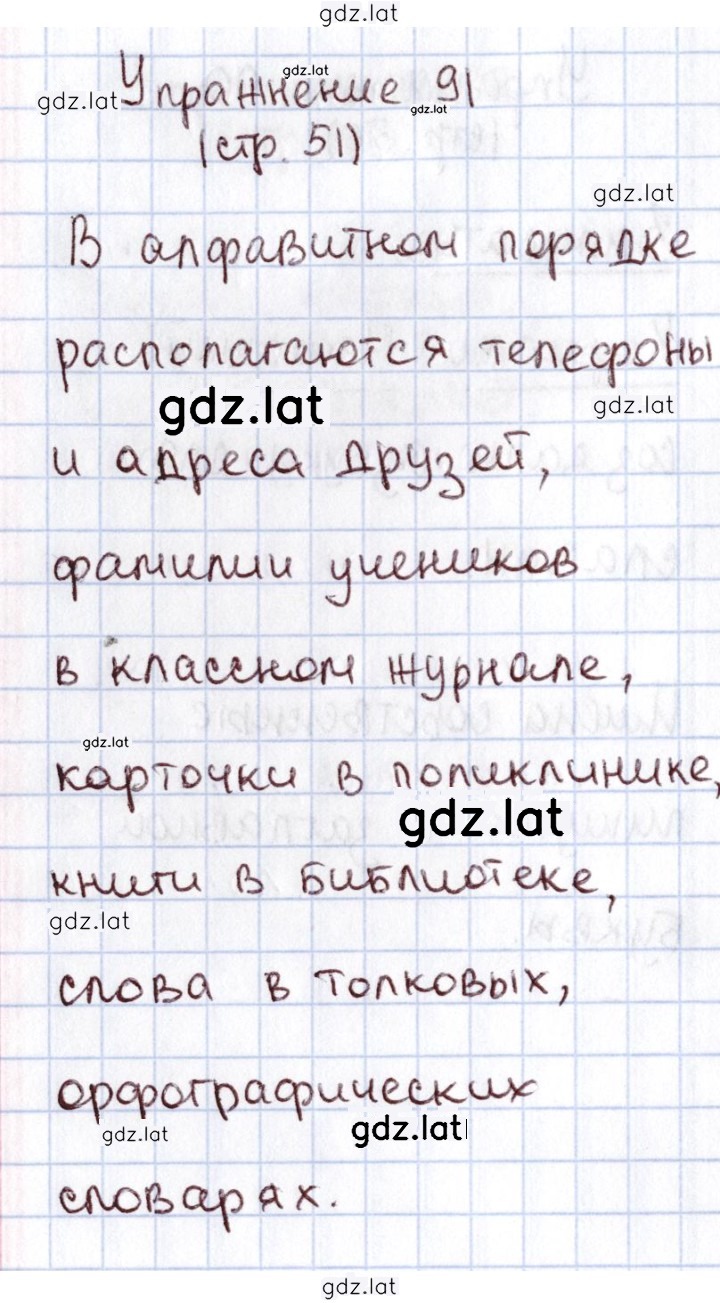 gdz.lat
gdz.lat
gdz.lat Упражнение 91
gdz.lat
(стр. 51)
gdz.lat
В алфавитном порядке
располагаются телефоны
gdz.lat
gdz.lat
и адреса друзей,
фамилии учеников
в классном журнале,
gdz.lat
карточки в поликлинике,
gdz.lat
книги в библиотеке,
gdz.lat
слова в толковых,
орфографических
gdz.lat
gdz.lat
словарях.
gdz.lat